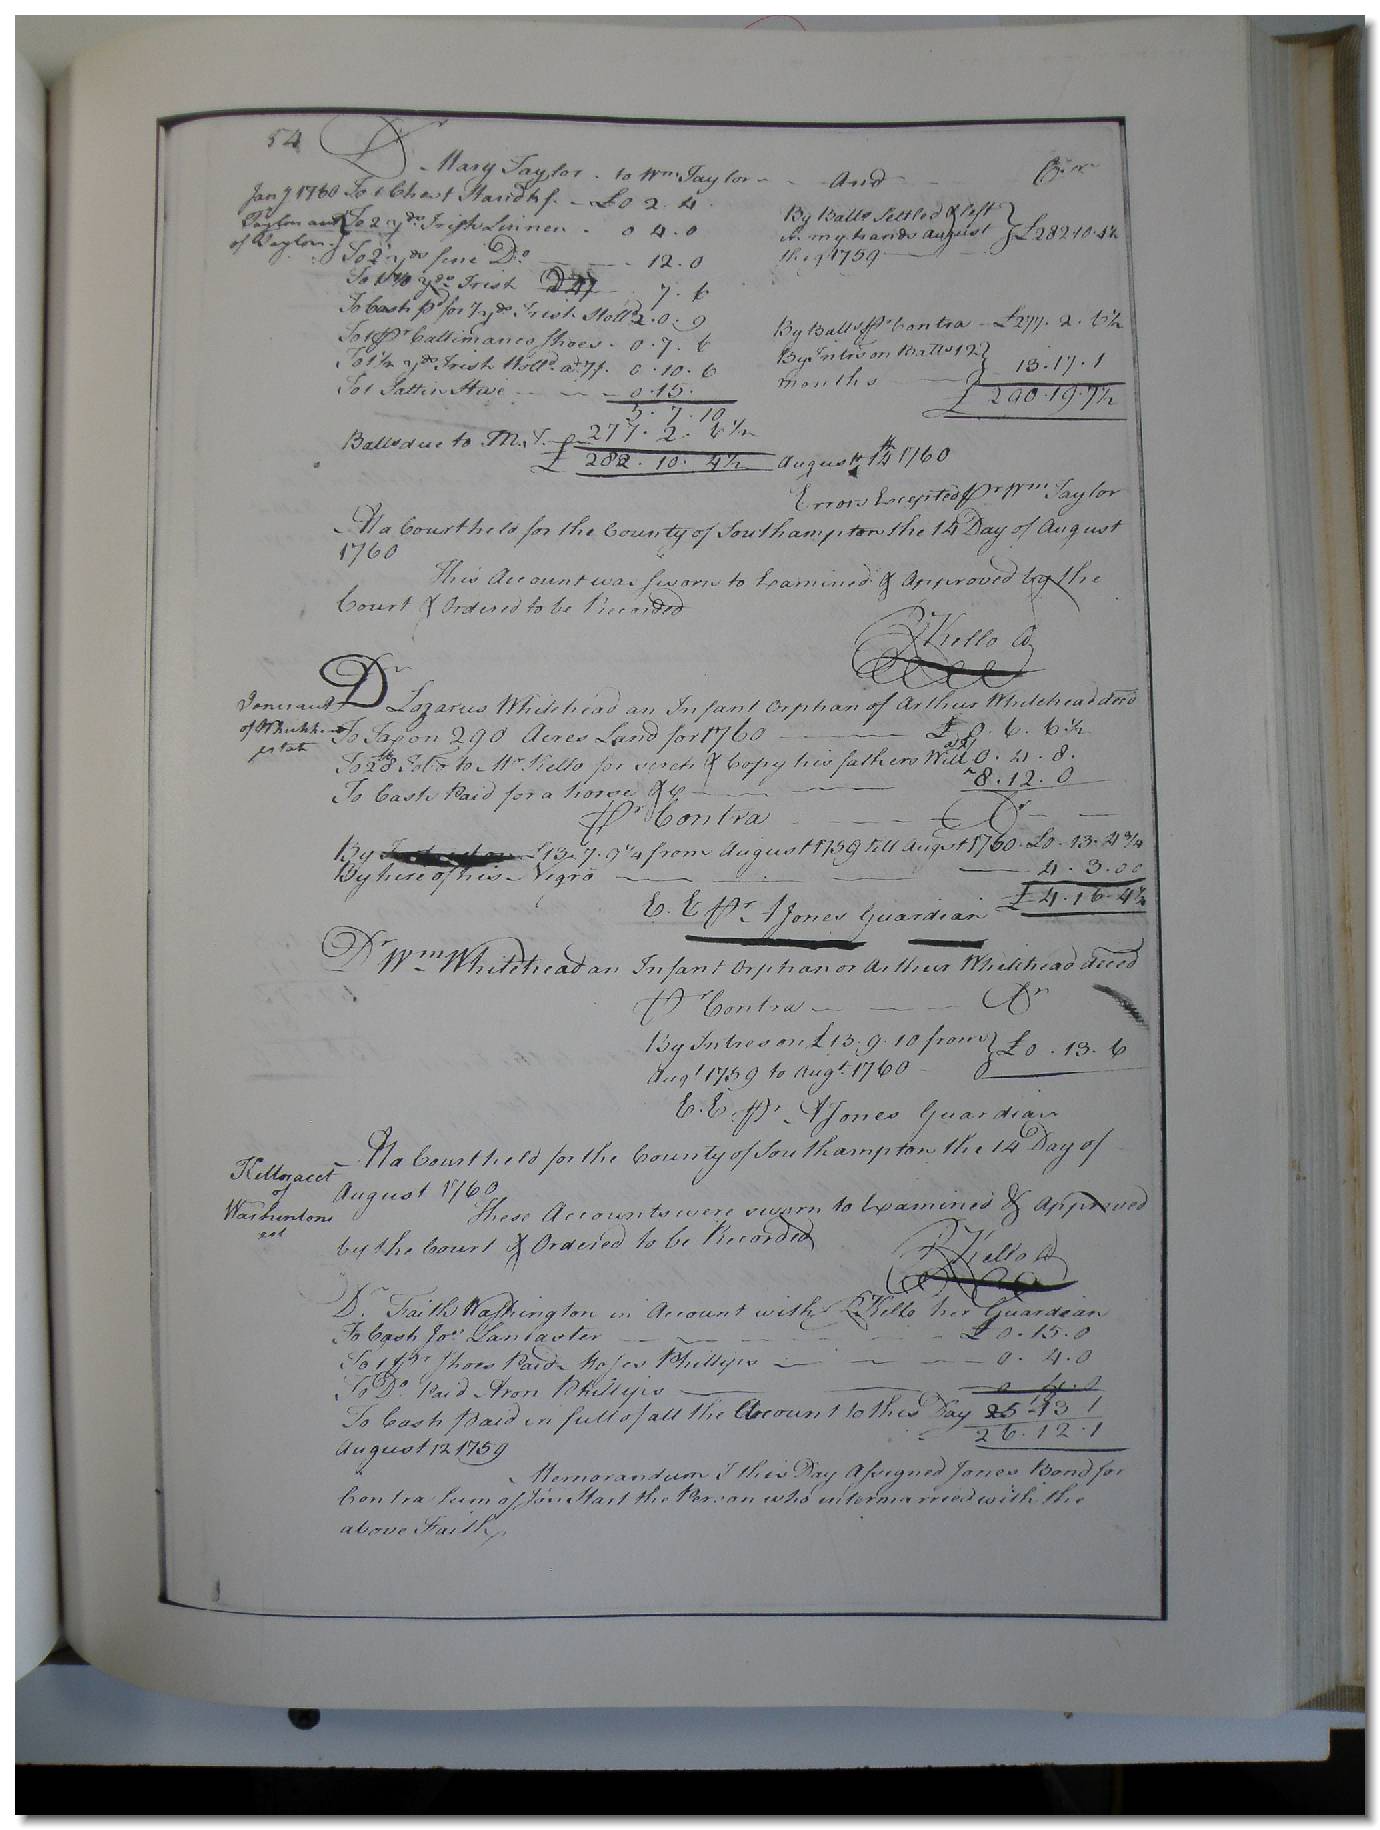 54
Dr Mary Taylor - to Wm Taylor - - And - Cr
Jany 1760 To 1 Chest Handkf. - £0. 2. 4.
Taylors acct
of Taylor
To 2 yds Irish Linnen - 0. 4. 0
To 2 yds fine Do - - 12. 0
yds Irish 7. 6
To Cash pd for 7 yds Irish Holld 2. 0. 9
To 1 pr Callimanco Shoes - 0. 7. 6
To 1½ yds Irish Holld at 7/. 0. 10. 6
To 1 Sattin - - - 0. 15.
5. 7. 10
Balls due to M. T. 277. 2. 6½
£ 282. 10. 4½
By Balls Settled & left
in my hands August } £282.10.4½
the 9 1759
By Balls pr Contra - £277. 2. 6½
By Intrs on Balls 12 } 13. 17. 1
months
£ 290. 19. 7½
August 14th 1760
Errors Excepted pr Wm Taylor
At a Court held for the County of Southampton the 14 Day of August
1760
This Account was sworn to Examined & Approved by the
Court & Ordered to be Recorded
R Kello
Dr Lazarus Whitehead an Infant Orphan of Arthur Whitehead decd
Jones acct
of Whitehead
estate
To Tax on 290 Acres Land for 1760 - £ 0. 6. 6½
To 28 Tobo to Mr Kello for & Copy his fathers Will 0. 4. 8.
To Cash Paid for a horse &c - - - 8. 12. 0
pr Contra - - - Cr - -
By £13. 7. 9¼ from August 1759 till Augst 1760. £0. 13. 4¾
By hire of his Negro - - - - 4. 3. 00
£ 4. 16. 4¾
E. E pr A Jones Guardian
Dr Wm Whitehead an Infant Orphan of Arthur Whitehead deced
pr Contra - - - Cr
By Intres on £13. 9. 10 from } £0. 13. 6
Augt 1759 to Augt. 1760 -
E. E. pr A Jones Guardian
At a Court held for the County of Southampton the 14 Day of
August 1760
Kellos acct
of
Washintons
est
These Accounts were sworn to Examined & Approved
by the Court & Ordered to be Recorded
R Kello
Dr Faith Washington in Account with R Kello her Guardian
To Cash Jos Lancaster - - - - £ 0. 15. 0
To 1 pr Shoes Paid Moses Phillips - - - 0. 4. 0
To Do. Paid Aron Phillips - - 0. 4. 0
To Cash Paid in full of all the Account to this Day 25 13 1
August 12 1759
26. 12. 1
Memorandum I this Day Assigned Jones Bond for
Contra Sum of Jon Hart the Person who intermarried with the
above Faith